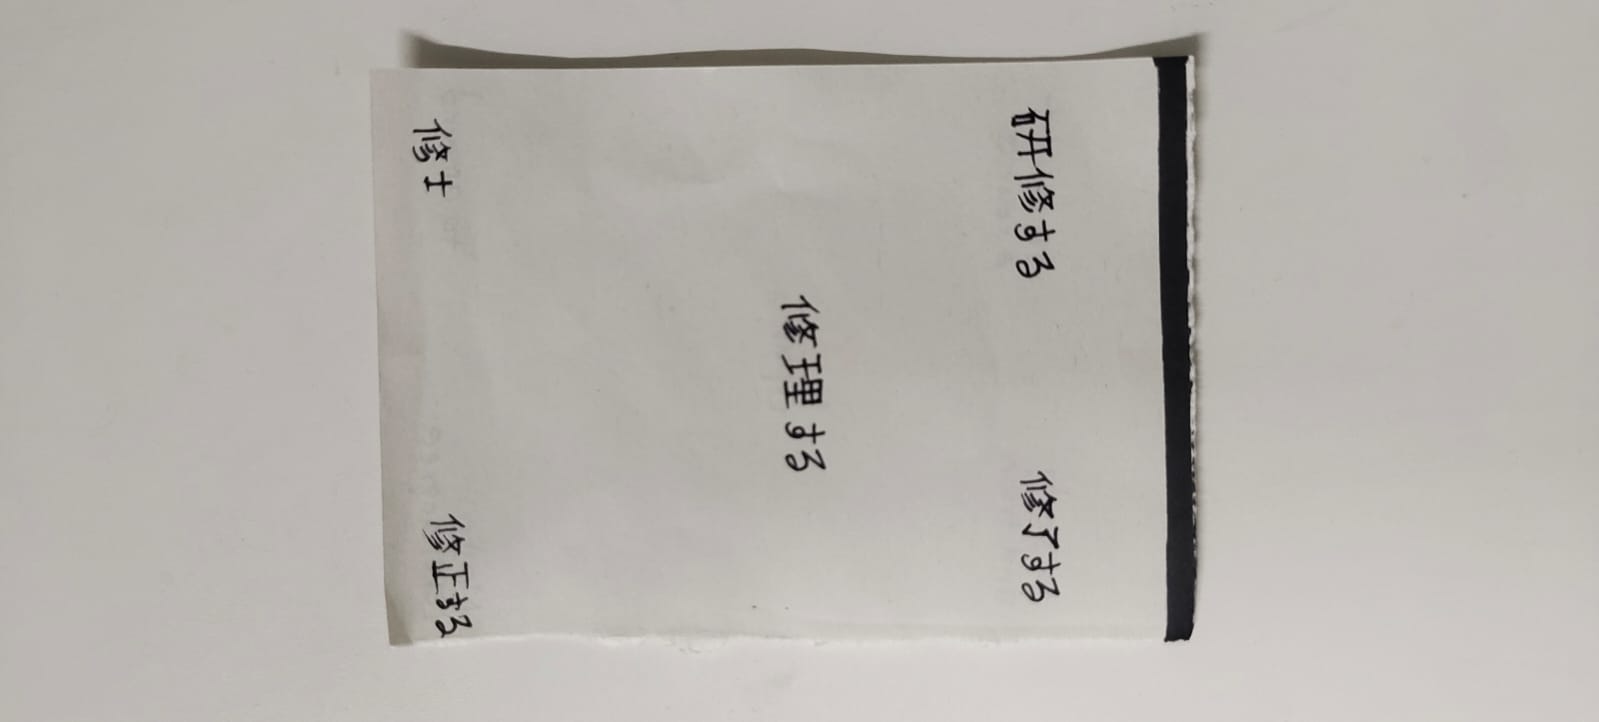 研修する
修了する
修理する
修士
修正する